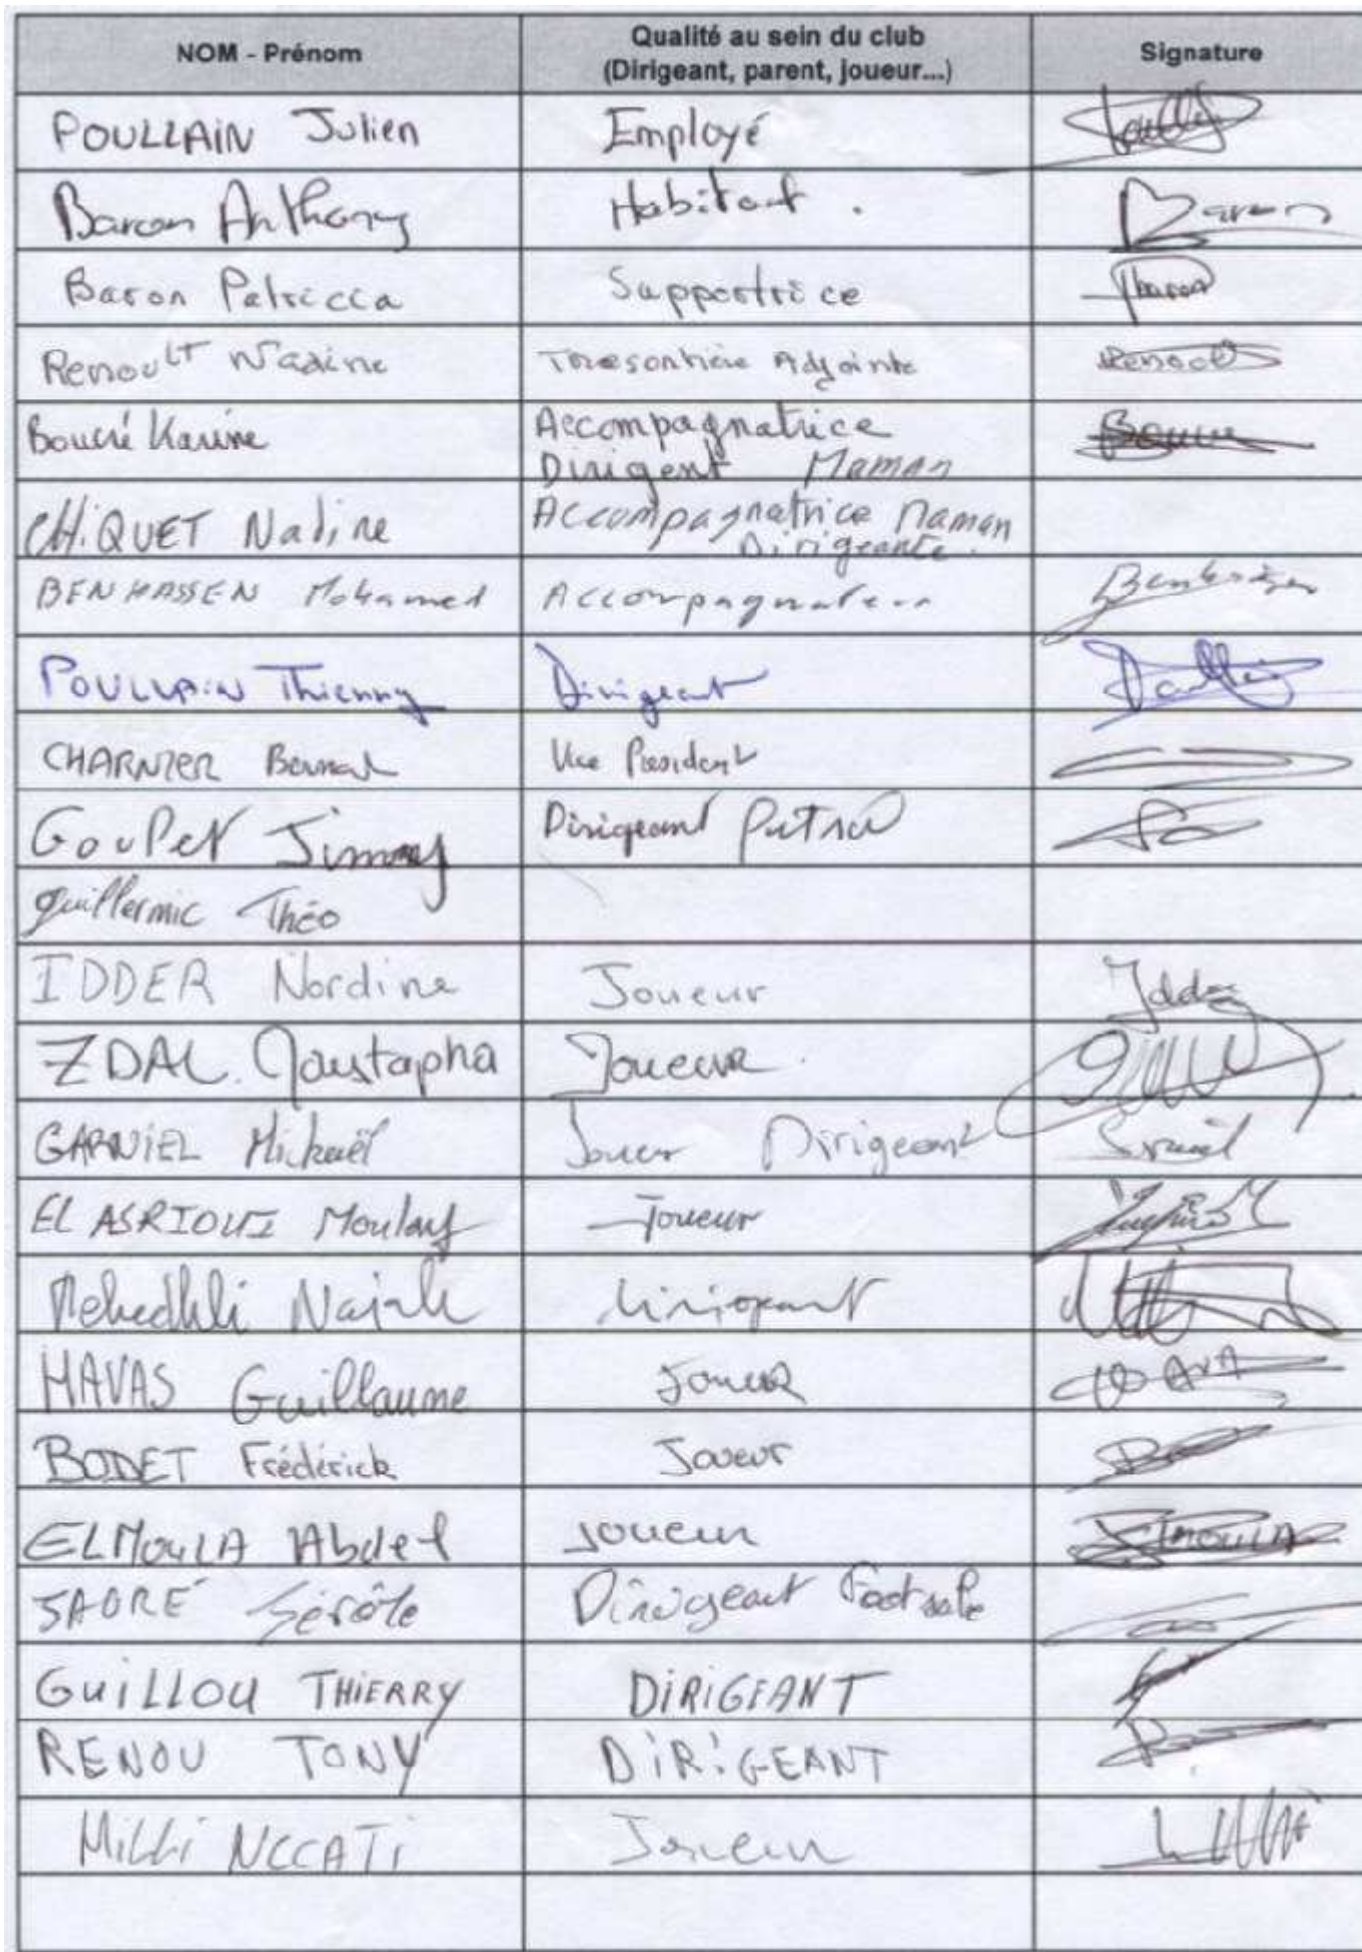 NOM - Prénom Qualité au sein du club Signature
(Dirigeant, parent, joueur...)
POULLAIN Julien Employé
Baron Anthony Habitant .
Baron Patricia Supportrice Baron
Renoult Nadine Adjointe Renoult
Boucré Karine Accompagnatrice
Dirigent Maman
CHiQUET Nadine Accompagnatrice Maman
Dirigeante.
BENHASSEN Mohamed Accompagnateur
POULLAIN Thierry Dirigeant
CHARNIER Bernard Vice President
GouPet Jimmy Dirigeant
guillermic Théo
IDDER Nordine Joueur Idder
ZDAC Moustapha Joueur.
GARNIEL Mickaël Joueur Dirigeant
EL ASRIOUI Moulay Joueur
Joueur
HAVAS Guillaume Joueur
BODET Frédérick Joueur
ELMOULA Abdel Joueur ELMOULA
Dirigeant Footsale
GuiLLOU THIERRY DIRIGEANT
RENOU TONY DiRiGEANT
MiLLi NCCATi Joueur